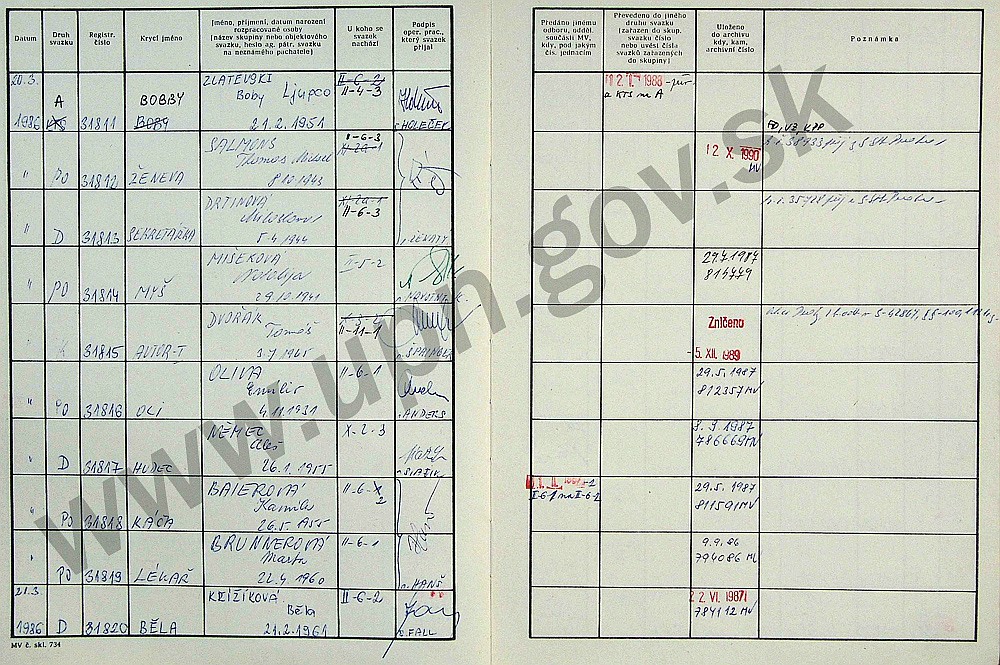 Datum
Druh svazku
Registr. číslo
Krycí jméno
Jméno, příjmení, datum narození
rozpracované osoby
(název skupiny nebo objektového
svazku, heslo ag. pátr. svazku
na neznámého pachatele)
U koho se
svazek
nachází
Podpis
oper. prac.,
který svazek
přijal
Předáno jinému
odboru, odděl.
součásti MV,
kdy, pod jakým
čís. jednacím
Převedeno do jiného
druhu svazku
(zařazen do skup.
svazku číslo
nebo uvési čísla
svazků zařazených
do skupiny)
Uloženo
do archivu
kdy, kam,
archivní číslo
Poznámka
20.3.
1986
A
31811
BOBBY
BOBY
ZLATEVSKI
Boby Ljupco
21.2.1951
II-C-2
II-4-3
HOLEČEK
2. II. 1988
a KTS na A
" PO 31812 ŽENEVA
SALMONS
Thomas
8.10.1943
II-6-3
12. X. 1990
MV
" D 31813 SEKRETÁŘKA
DRTINOVÁ
5.4.1944
II-6-3
" PO 31814 MYŠ
MIŠEKOVÁ
29.10.1941
II-5-2
29.7.1987
814779
" K 31815 AUTOR-T
DVOŘÁK
Tomáš
3.7.1965
II-11-1
Zničeno
-5. XII. 1989
" PO 31816 OLI
OLIVA
Emilio
4.11.1931
II-6-1
ANDERS
29.5.1987
812357 MV
" D 31817 HUDEC
NĚMEC
Aleš
26.1.1955
X-2-3
9.9.1987
786669 MV
" PO 31818 KÁČA
BAIEROVÁ
Kamila
26.5.1955
II-6-2
29.5.1987
811591 MV
" PO 31819 LÉKAŘ
BRUNNEROVÁ
Marta
22.4.1960
II-6-1
HANŠ
9.9.86
794086 MV
21.3.
1986 D 31820 BĚLA
KŘÍŽÍKOVÁ
Běla
21.2.1961
II-6-2
FALL
22. VI. 1987
784112 MV
MV č. skl. 734
www.upn.gov.sk